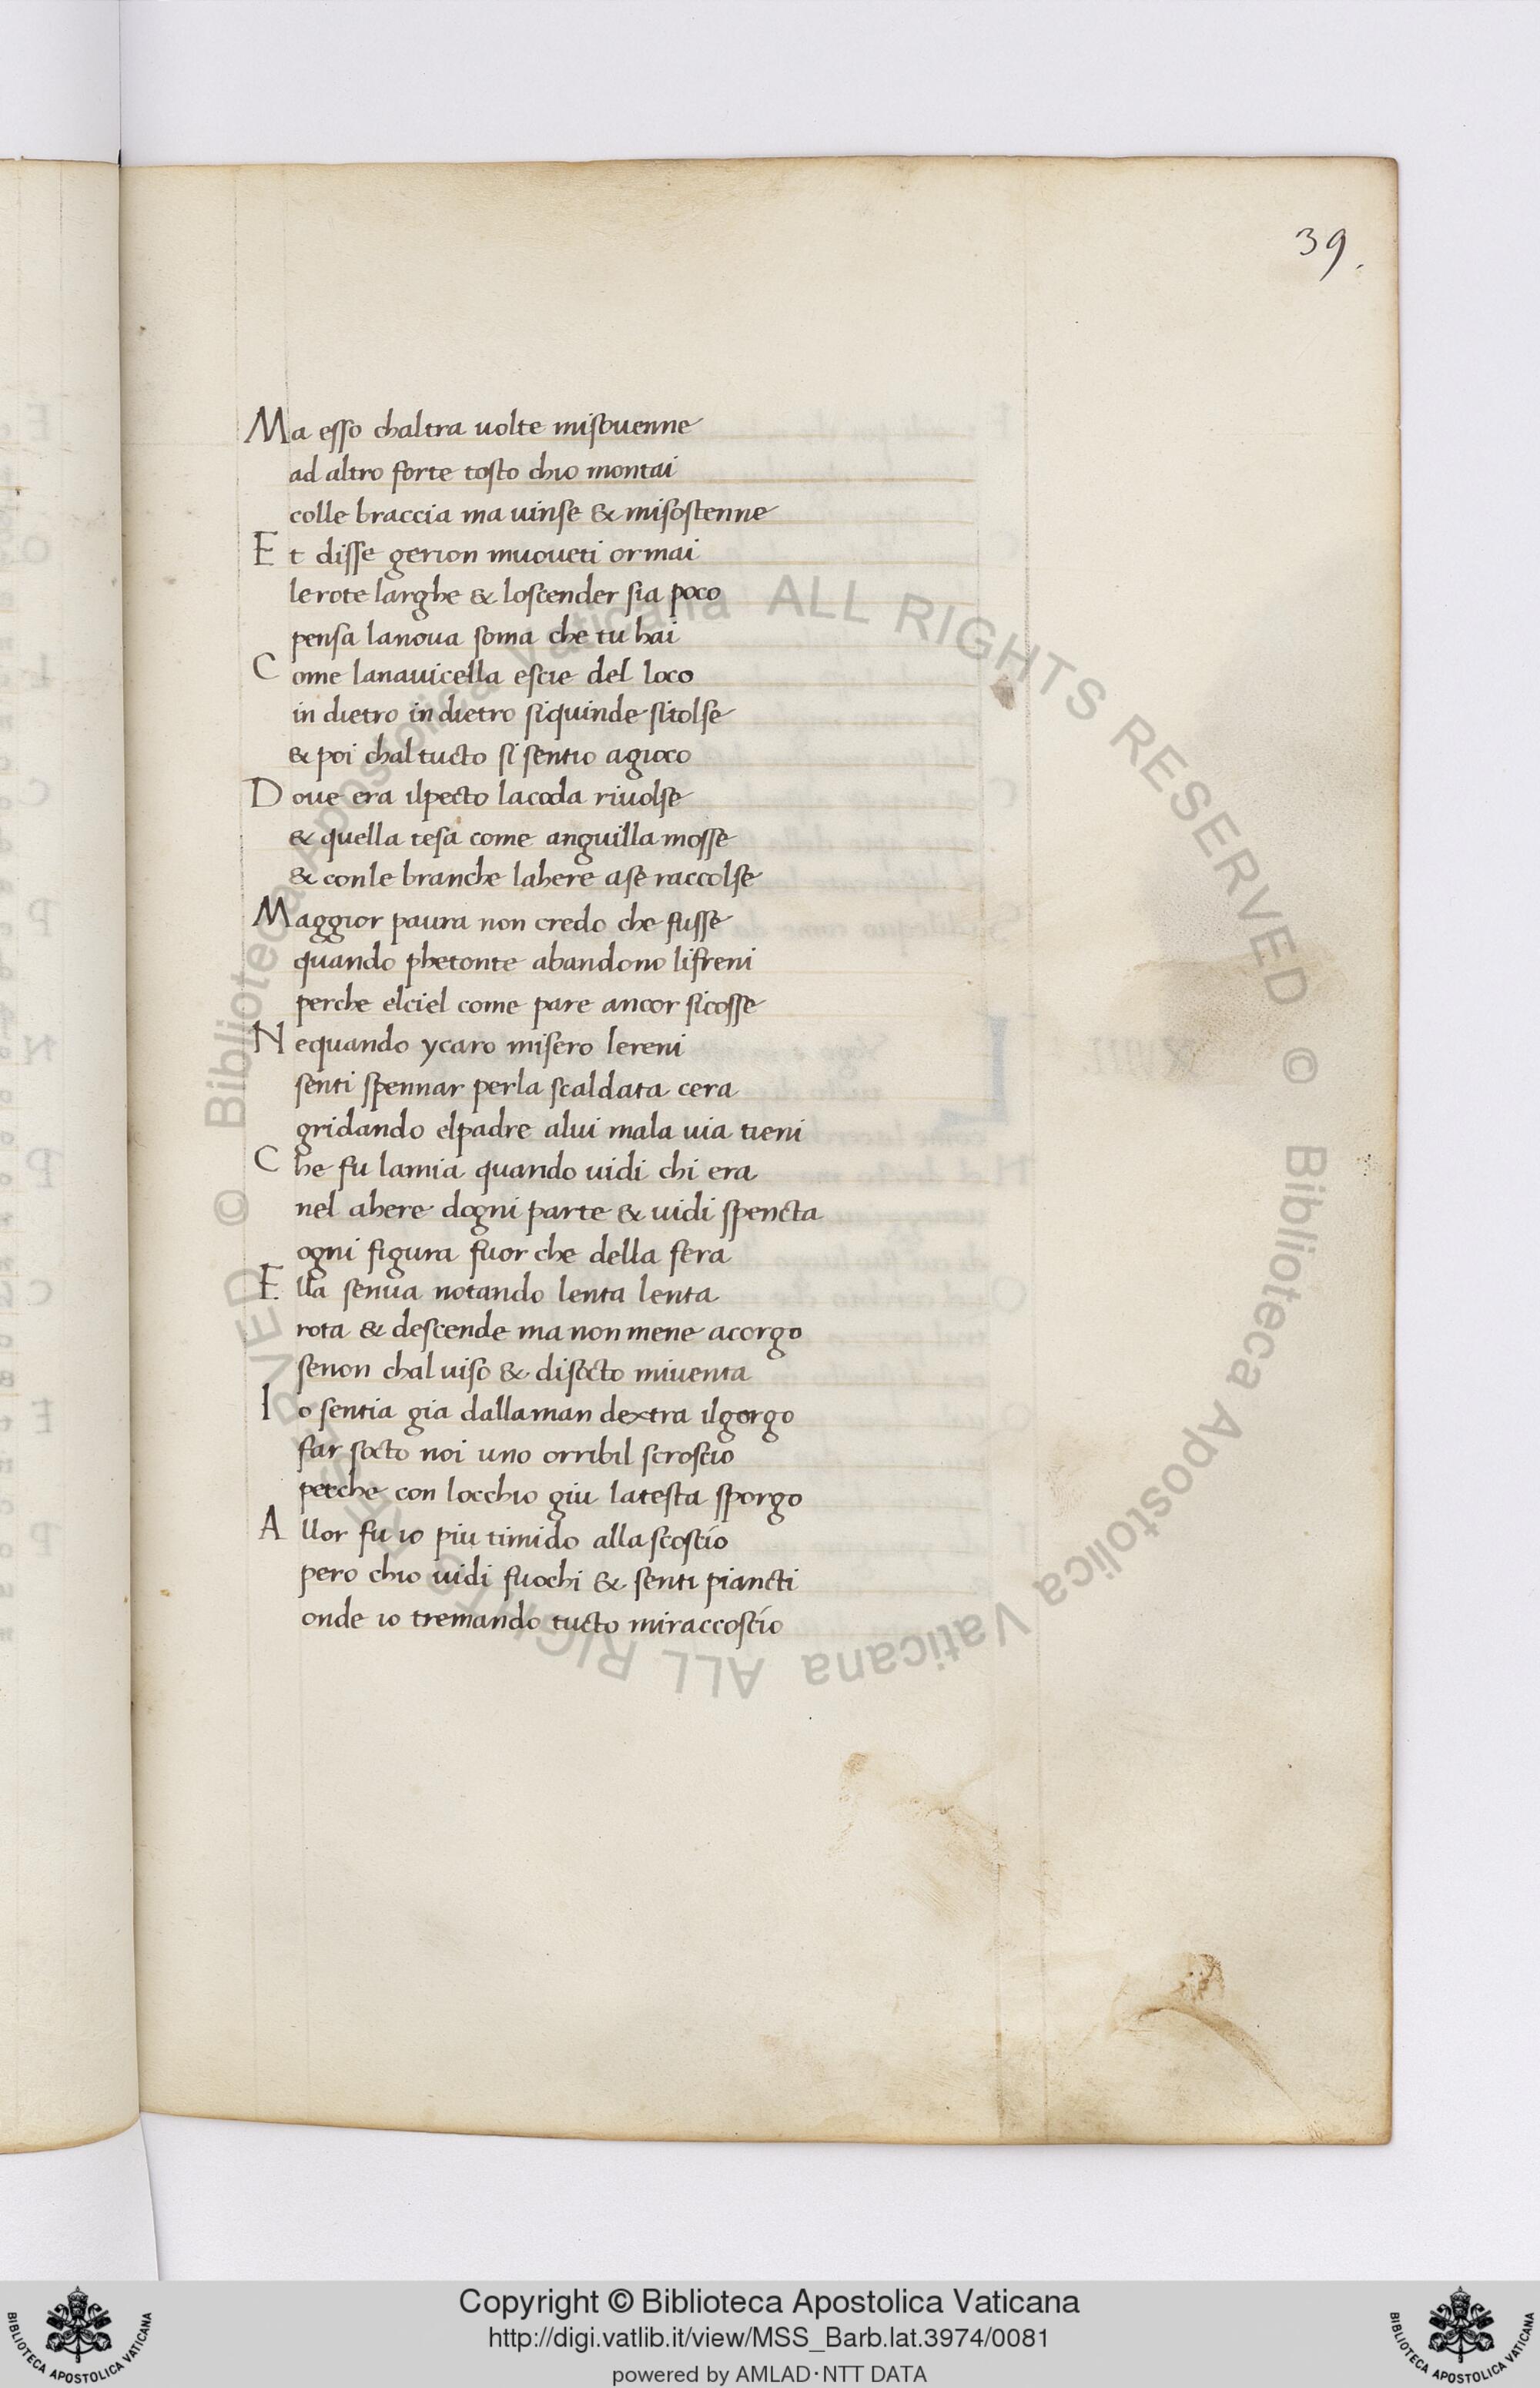 39.
Ma esso chaltra uolte misouenne
ad altro forte tosto chio montai
colle braccia ma uinse & misostenne
Et disse gerion muoueti ormai
lerote larghe & loscender sia poco
pensa lanoua soma che tu hai
Come lanauicella escie del loco
in dietro in dietro siquinde sitolse
& poi chal tucto si sentio agioco
Doue era ilpecto lacoda riuolse
& quella tesa come anguilla mosse
& conle branche lahere ase raccolse
Maggior paura non credo che fusse
quando phetonte abandono lifreni
perche elciel come pare ancor sicosse
Nequando ycaro misero lereni
senti spennar perla scaldata cera
gridando elpadre alui mala uia tieni
Che fu lamia quando uidi chi era
nel ahere dogni parte & uidi spencta
ogni figura fuor che della fera
Ella senua notando lenta lenta
rota & descende ma non mene acorgo
senon chal uiso & disocto miuenta
Io sentia gia dallaman dextra ilgorgo
far socto noi uno orribil scroscio
perche con locchio giu latesta sporgo
Allor fu io piu timido alla scoscio
pero chio uidi fuochi & senti piancti
onde io tremando tucto miraccoscio
© Biblioteca Apostolica Vaticana ALL RIGHTS RESERVED © Biblioteca Apostolica Vaticana ALL RIGHTS RESERVED
BIBLIOTECA APOSTOLICA VATICANA
Copyright © Biblioteca Apostolica Vaticana
http://digi.vatlib.it/view/MSS_Barb.lat.3974/0081
powered by AMLAD·NTT DATA
BIBLIOTECA APOSTOLICA VATICANA